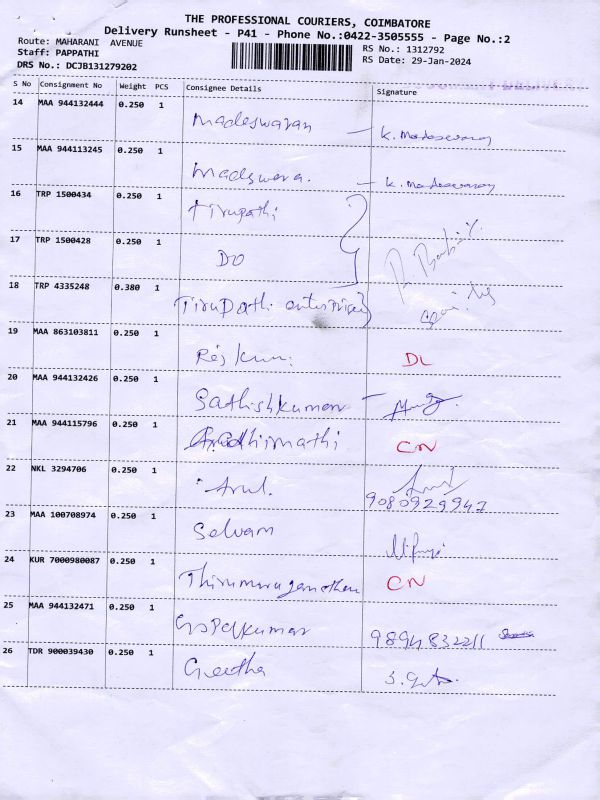 THE PROFESSIONAL COURIERS, COIMBATORE
Delivery Runsheet - P41 - Phone No.:0422-3505555 - Page No.:2
Route: MAHARANI AVENUE
RS No.: 1312792
Staff: PAPPATHI
RS Date: 29-Jan-2024
DRS No.: DCJB131279202
S No Consignment No Weight PCS Consignee Details Signature
14 MAA 944132444 0.250 1 Madeswaran - K. Madeswaran
15 MAA 944113245 0.250 1 Madeswara. - K. Madeswaran
16 TRP 1500434 0.250 1 tirupathi
17 TRP 1500428 0.250 1 DO
18 TRP 4335248 0.380 1 Tirupathi enterprises
19 MAA 863103811 0.250 1 DL
20 MAA 944132426 0.250 1 Sathishkumar -
21 MAA 944115796 0.250 1 CN
22 NKL 3294706 0.250 1 Arul.
9080929947
23 MAA 100708974 0.250 1 Selvam
24 KUR 7000980087 0.250 1 CN
25 MAA 944132471 0.250 1 Gopalkumar 9894832211
26 TDR 900039430 0.250 1 Geetha